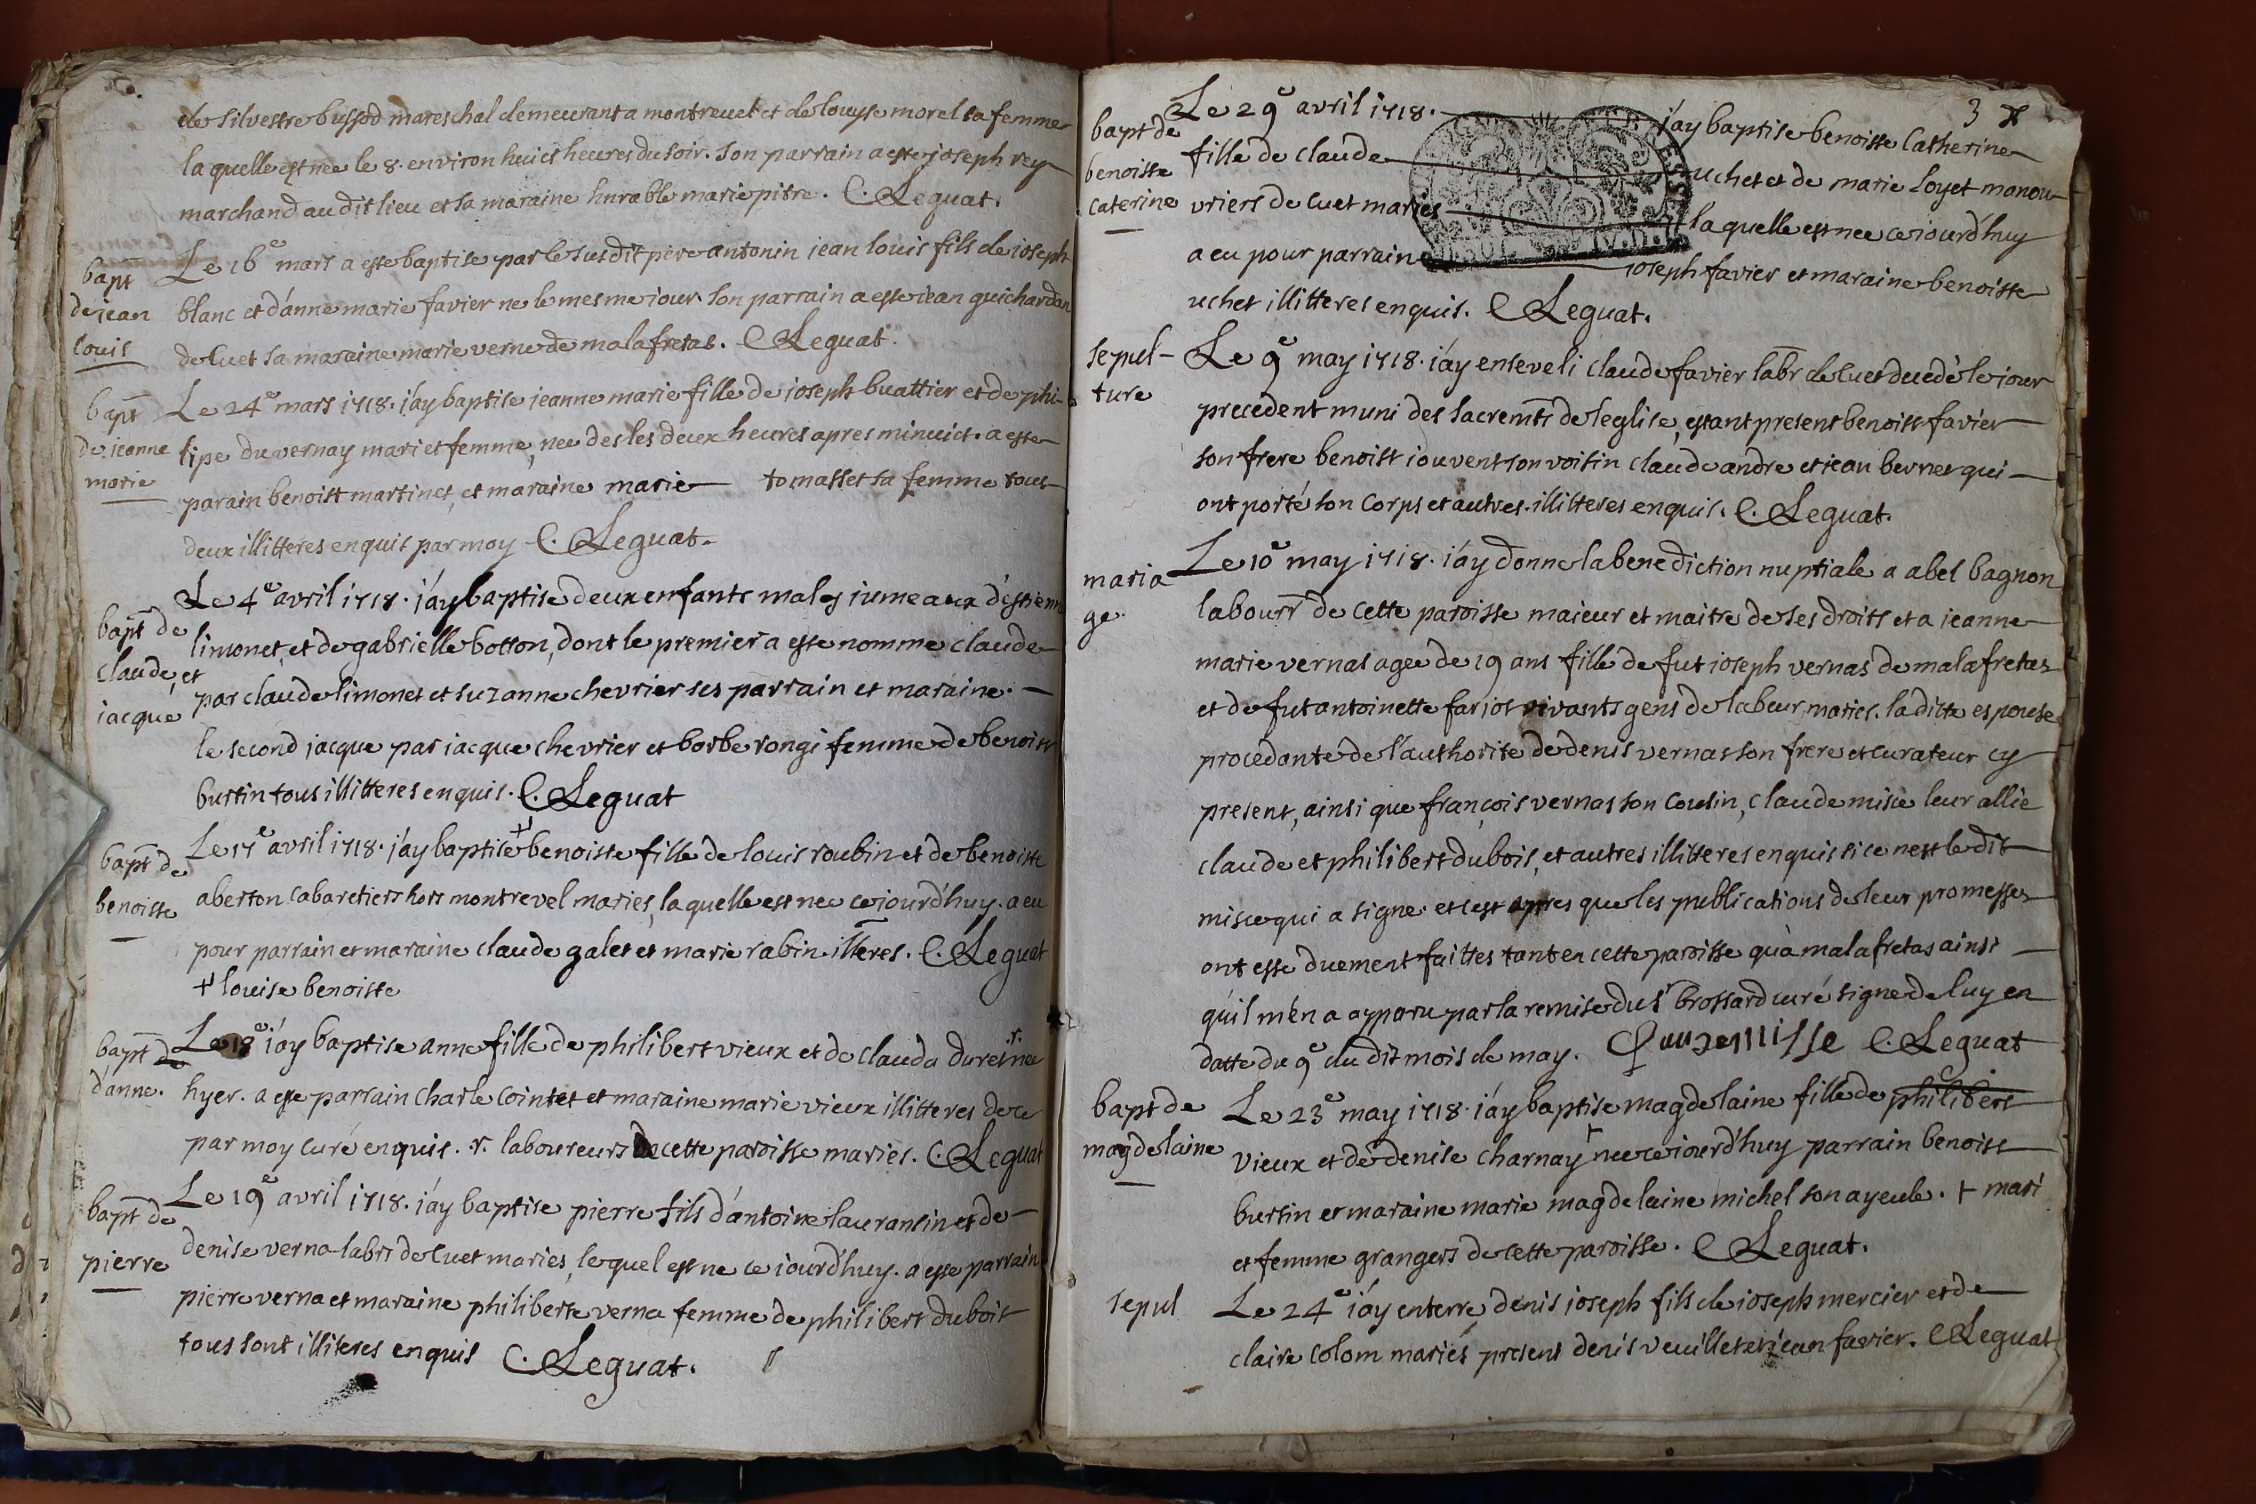 de silvestre bussod mareschal demeurant a montrevel et de louyse morel sa femme
la quelle est nee le 8. environ huict heures du soir. son parrain a este joseph rey
marchand au dit lieu et sa maraine hnrable marie pitre. C. Leguat.
bapt
de jean
louis
Le 16e mars a este baptise par le susdit pere antonin jean louis fils de joseph
blanc et d'anne marie favier ne le mesme jour son parrain a este jean guichardan
de luet sa maraine marie verne de malafretas. C Leguat.
bapt
de jeanne
marie
Le 24e mars 1718. j'ay baptise jeanne marie fille de joseph buattier et de phi-
lipe du vernay mari et femme, nee des les deux heures apres minuict. a este
parain benoist martinet, et maraine marie tomasset sa femme tous
deux illitteres enquis par moy C. Leguat.
bapt de
claude, et
jacque
Le 4e avril 1718. j'ay baptise deux enfants males jumeaux d'estienne
limonet, et de gabrielle botton, dont le premier a este nomme claude
par claude limonet et suzanne chevrier ses parrain et maraine.
le second jacque par jacque chevrier et borbe rongi femme de benoist
burtin tous illitteres enquis. C. Leguat
bapt de
benoiste
Le 17e avril 1718. j'ay baptise + benoiste fille de louis roubin et de benoiste
aberton cabaretiers hors montrevel maries, la quelle est nee ce jourd'huy. a eu
pour parrain et maraine claude galet et marie rabin illteres. C. Leguat
+ louise benoiste
bapt de
d'anne.
Le 18e j'ay baptise anne fille de philibert vieux et de clauda duret r. nee
hyer. a este parrain charle cointet et maraine marie vieux illitteres de ce
par moy curé enquis. r. laboureurs de cette paroisse maries. C. Leguat
bapt de
pierre
Le 19e avril 1718. j'ay baptise pierre fils d'antoine lauransin et de
denise verna labrs de luet maries, lequel est ne ce jourd'huy. a este parrain
pierre verna et maraine philiberte verna femme de philibert dubois
tous sont illiteres enquis C. Leguat.
3
bapt de
benoiste
caterine
Le 29e avril 1718. j'ay baptise benoiste Catherine
fille de claude uchet et de marie loyet manou-
vriers de luet maries la quelle est nee ce jourd'huy
a eu pour parrain joseph favier et maraine benoiste
uchet illitteres enquis. C Leguat.
sepul-
ture
Le 9e may 1718. j'ay enseveli claude favier labr de luet decedé le jour
precedent muni des sacremts de leglise, estant present benoist favier
son frere benoist jouvent son voisin claude andre et jean bernet qui
ont porté son corps et autres. illitteres enquis. C. Leguat.
maria
ge.
Le 10e may 1718. j'ay donne la benediction nuptiale a abel bagnon
labourr de cette paroisse majeur et maitre de ses droits et a jeanne
marie vernas agee de 19 ans fille de fut joseph vernas de malafretas
et de fut antoinette farjot vivants gens de labeur maries. la ditte espouse
procedante de l'authorite de denis vernas son frere et curateur cy
present, ainsi que françois vernas son cousin, claude misce leur allie
claude et philibert dubois, et autres illitteres enquis si ce nest le dit
misce qui a signe. et cest apres que les publications de leur promesses
ont este duement faittes tant en cette paroisse qu'a malafretas ainsi
qu'il m'en a apparu par la remise du sr brossard curé signe de luy en
datte du 9e du dit mois de may. C. Leguat
bapt de
magdelaine
Le 23e may 1718. j'ay baptise magdelaine fille de philibert
vieux et de denise charnay + nee ce jourd'huy parrain benoist
burtin et maraine marie magdelaine michel son ayeule. + mari
et femme grangers de cette paroisse. C Leguat.
sepul
Le 24e j'ay enterre denis joseph fils de joseph mercier et de
claire colom maries present denis veuillet et jean favier. C Leguat